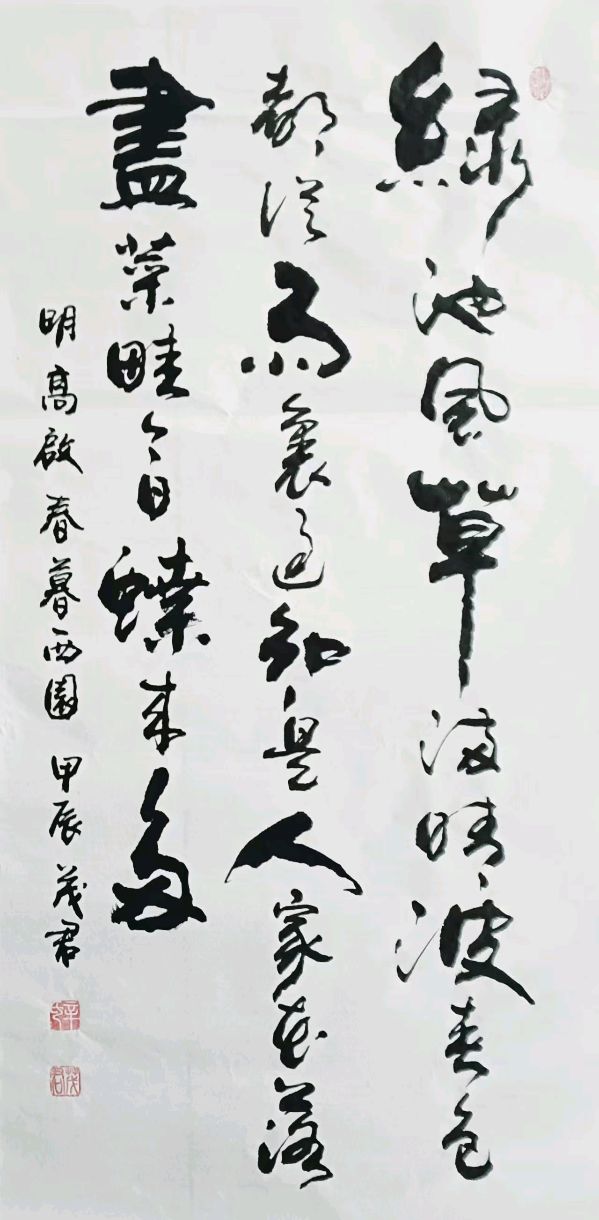 綠池風草滿晴波春色
都從雨裏過知是人家花落
盡菜畦今日蝶来多
明高啟春暮西園 甲辰 茂君
茂君